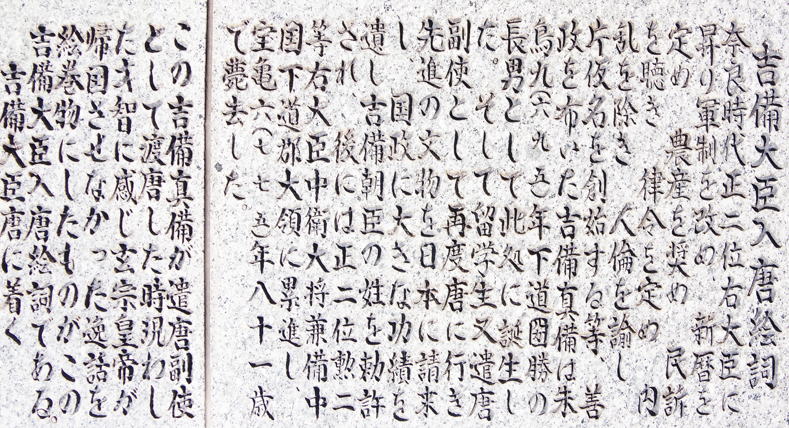 吉備大臣入唐絵詞
奈良時代正二位右大臣に
昇り軍制を改め 新暦を
定め 農産を奨め 民訴
を聴き 律令を定め 内
乱を除き 人倫を諭し
片仮名を創始する等 善
政を布いた吉備真備は朱
鳥九(六九五)年下道圀勝の
長男として此処に誕生し
た。そして留学生又遣唐
副使として再度唐に行き
先進の文物を日本に請来
し、国政に大きな功績を
遺し吉備朝臣の姓を勅許
され、後には正二位勲二
等右大臣中衛大将兼備中
国下道郡大領に累進し、
宝亀六(七七五)年八十一歳
で薨去した。
この吉備真備が遣唐副使
として渡唐した時現わし
た才智に感じ玄宗皇帝が
帰国させなかった逸話を
絵巻物にしたものがこの
吉備大臣入唐絵詞である。
吉備大臣唐に着く